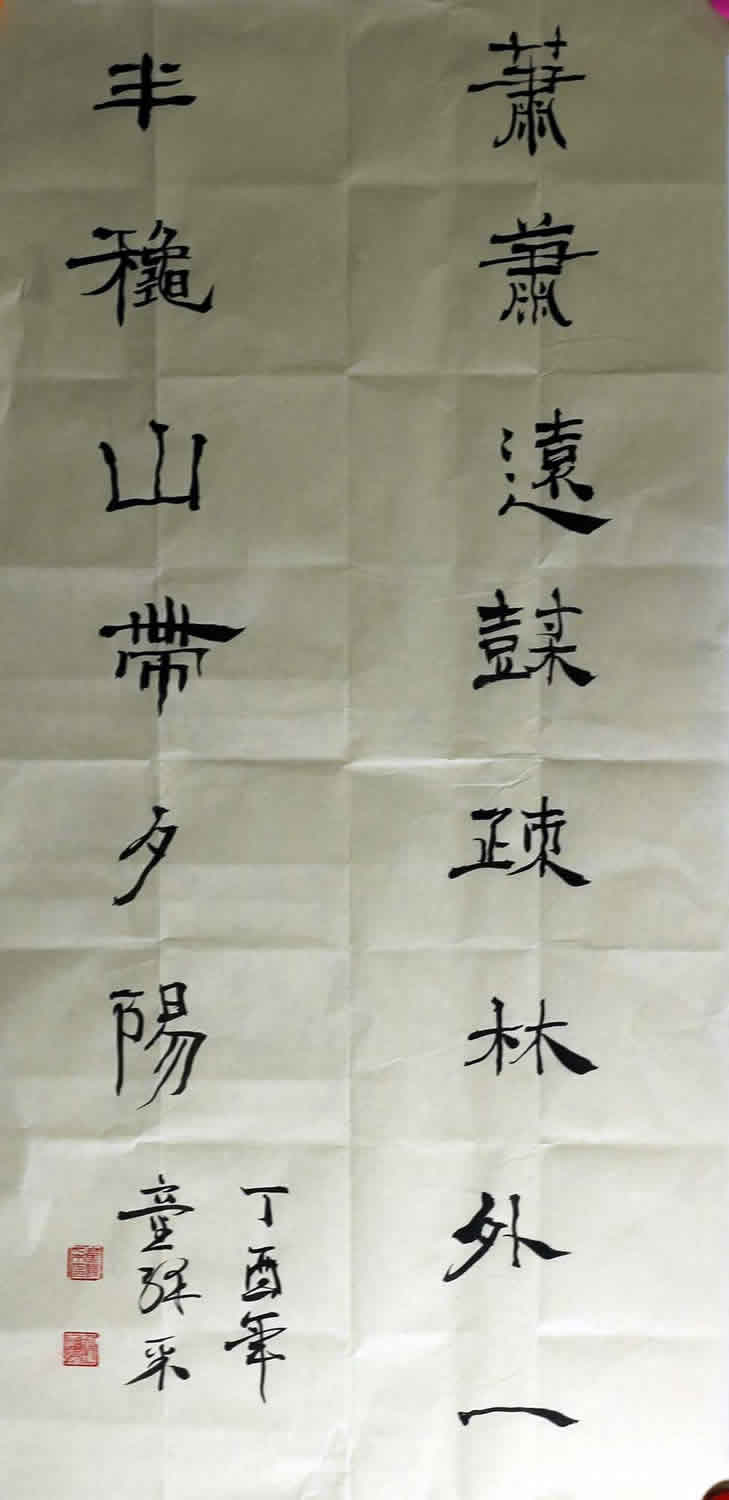 蕭蕭遠樹疎林外一
半穐山帶夕陽
丁酉年
童